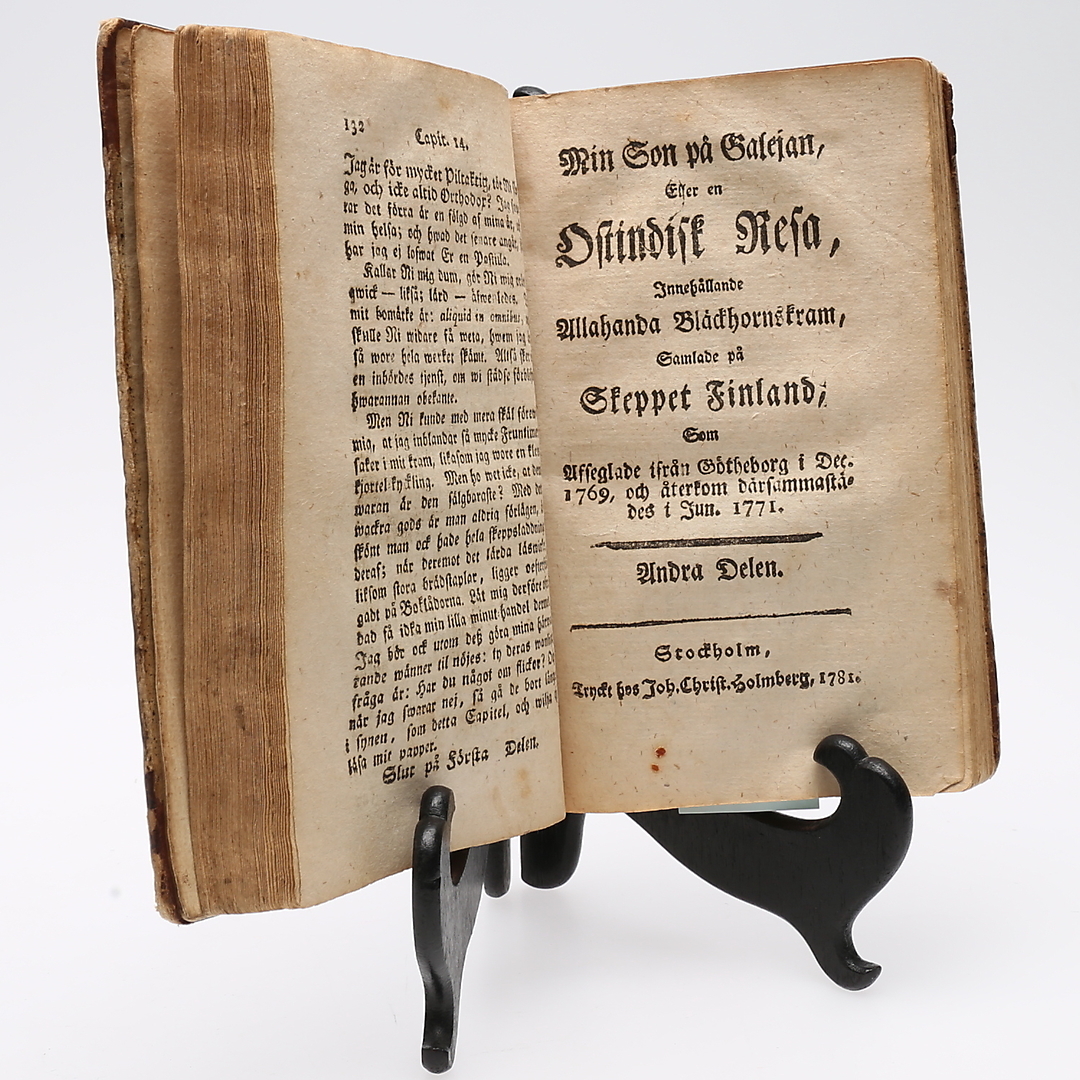 132
Capit. 14.
Jag är för mycket Piltaktig,
ga, och icke altid Orthodox? Jag
rar det förra är en följd af mina år,
min helsa; och hwad det senare angår,
har jag ej lofwat Er en Postilla.
Kallar Ni mig dum, gör Ni mig
qwick — likså; lärd — äfwenledes.
mit bomärke är: aliquid in omnibus,
skulle Ni widare få weta, hwem jag
så wore hela werket skämt. Altså
en inbördes tjenst, om wi städse
hwarannan obekante.
Men Ni kunde med mera skäl
mig, at jag inblandar så mycke
saker i mit kram, likasom jag wore en
kjortel-kyckling. Men ho wet icke, at
waran är den säljbaraste? Med
wackra gods är man aldrig förlägen,
skönt man ock hade hela skeppsladdning
deraf; när deremot det lärda
liksom stora brädstaplar, ligger
gadt på Boklådorna. Låt mig derföre
bad få idka min lilla minut-handel
Jag bör ock utom deß göra mina
tande wänner til nöjes: ty deras
fråga är: Har du något om flickor?
när jag swarar nej, så gå de bort
i synen, som detta Capitel, och wilja
läsa mit papper.
Slut på Första Delen.
Min Son på Galejan,
Eller en
Ostindisk Resa,
Innehållande
Allahanda Bläckhornskram,
Samlade på
Skeppet Finland,
Som
Afseglade ifrån Götheborg i Dec.
1769, och återkom därsammastä-
des i Jun. 1771.
Andra Delen.
Stockholm,
Tryckt hos Joh. Christ. Holmberg, 1781.